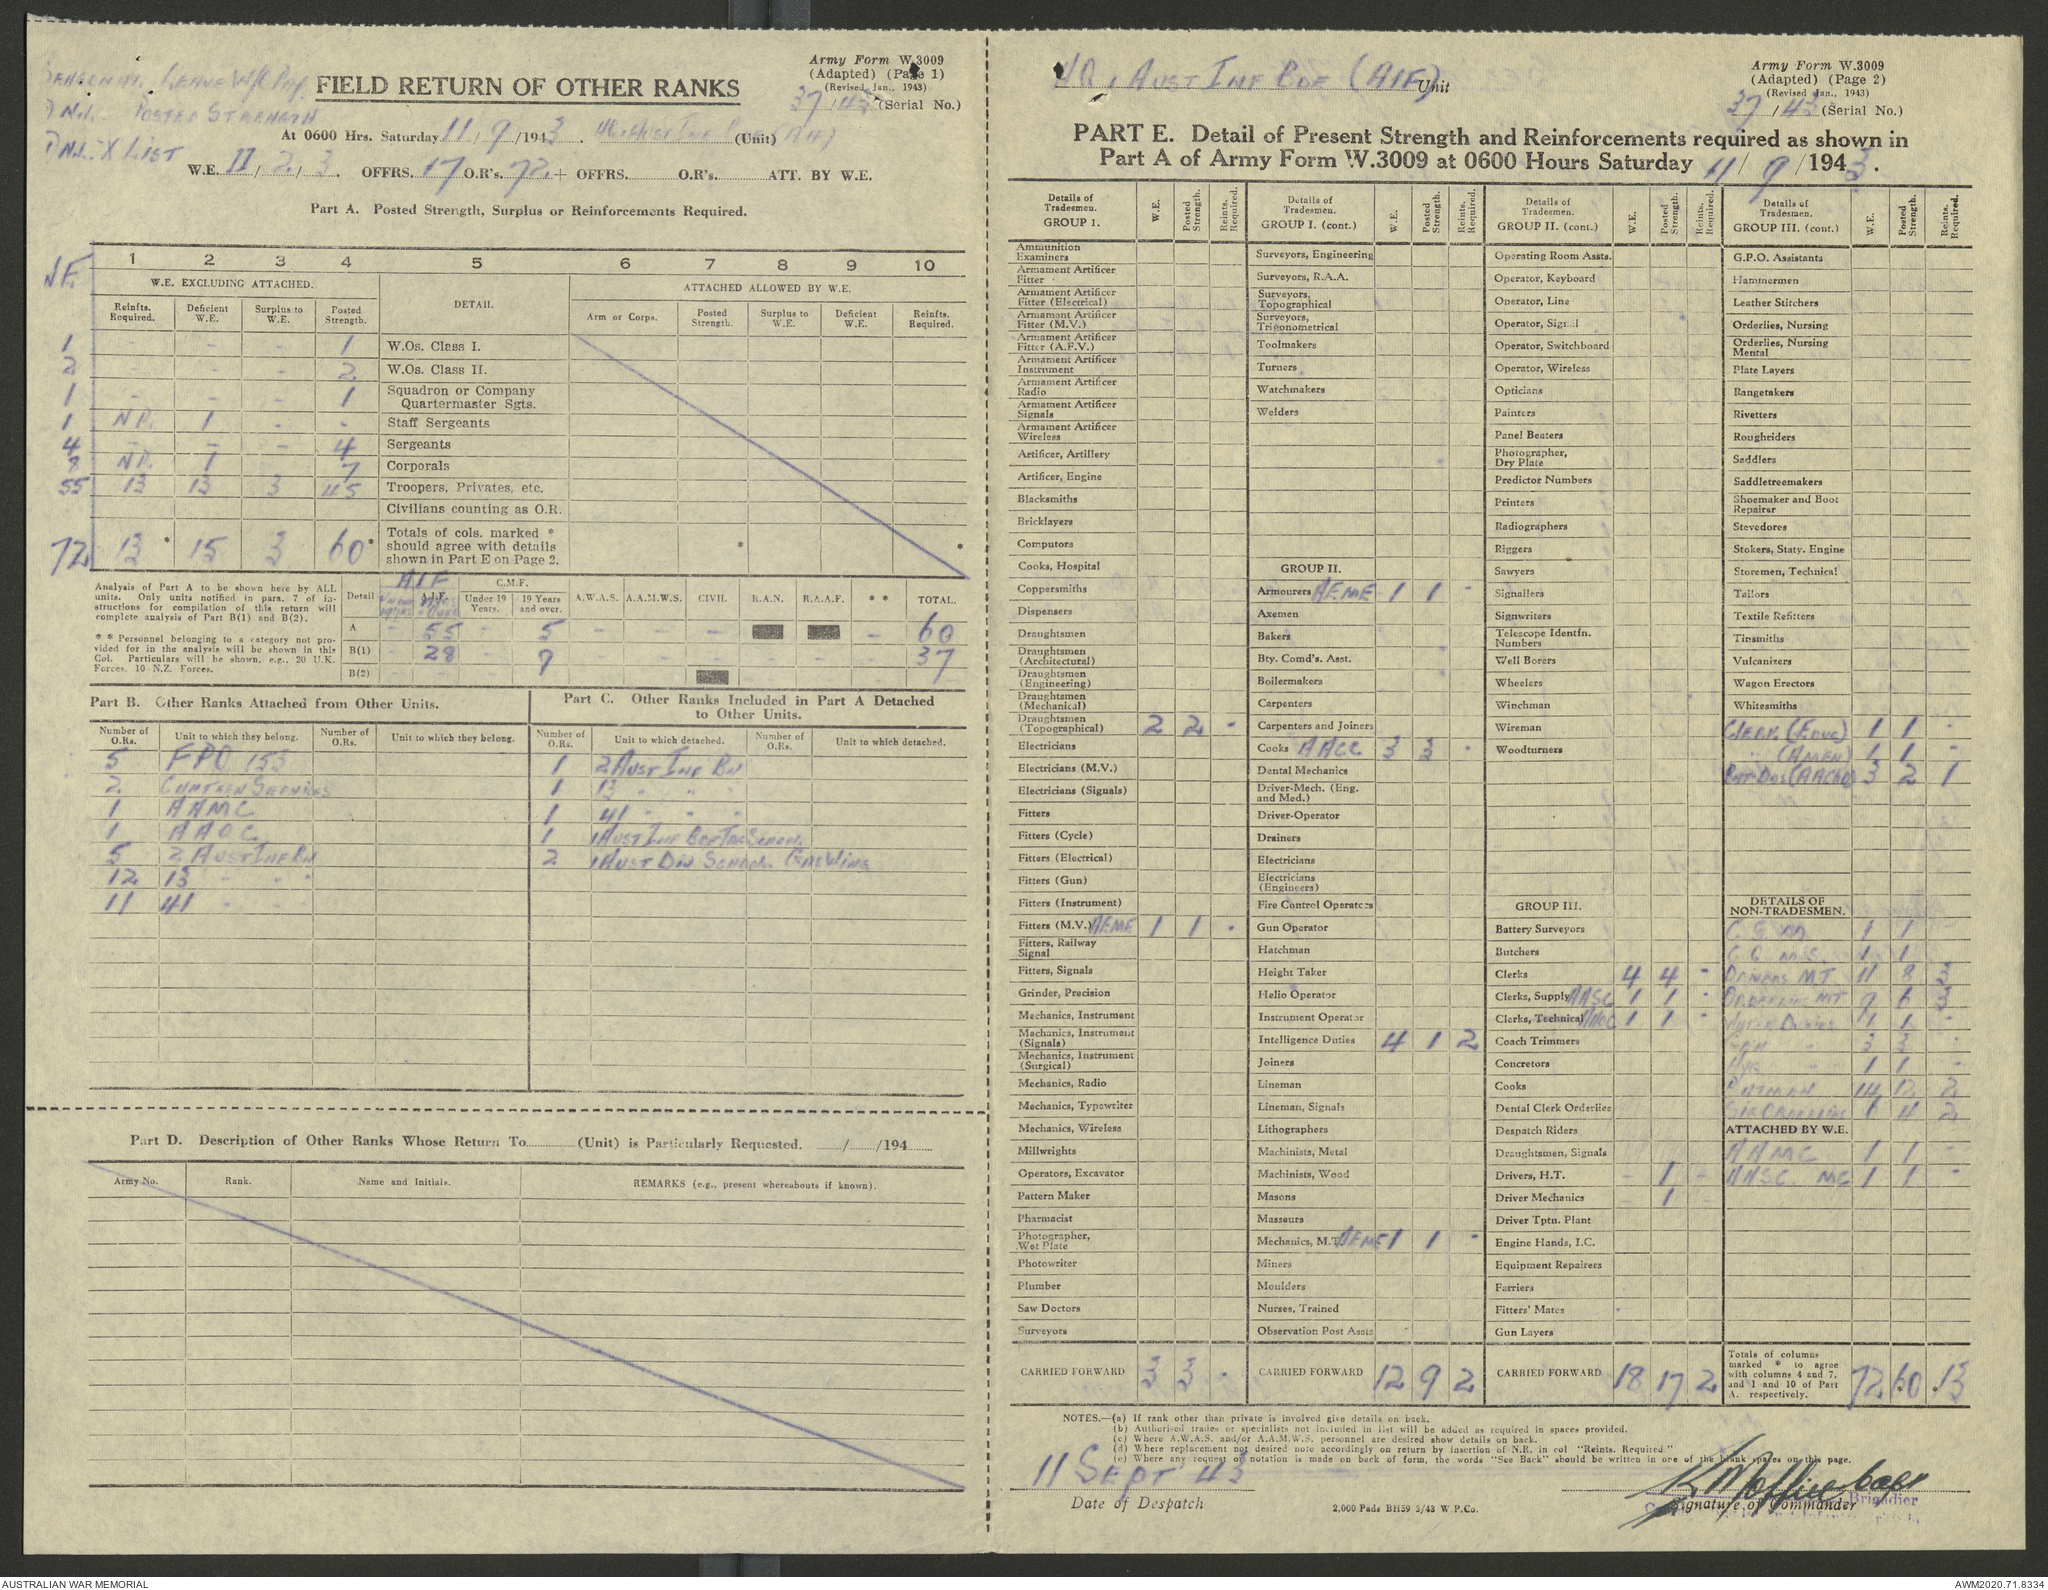 Army Form W.3009
(Adapted) (Page 1)
(Revised Jan., 1943)
37/43 (Serial No.)
FIELD RETURN OF OTHER RANKS
POSTED STRENGTH
X LIST
At 0600 Hrs. Saturday 11/9/1943. (Unit)
W.E. II/2/3. OFFRS. 17 O.R's. 72 + OFFRS. O.R's. ATT. BY W.E.
Part A. Posted Strength, Surplus or Reinforcements Required.
1 2 3 4 5 6 7 8 9 10
W.E. EXCLUDING ATTACHED. DETAIL. ATTACHED ALLOWED BY W.E.
Reinfts. Required. Deficient W.E. Surplus to W.E. Posted Strength. Arm or Corps. Posted Strength. Surplus to W.E. Deficient W.E. Reinfts. Required.
1 - - - 1 W.Os. Class I.
2 - - - 2 W.Os. Class II.
1 - - - 1 Squadron or Company Quartermaster Sgts.
1 NR. 1 - - Staff Sergeants
4 - - - 4 Sergeants
8 NR. 1 - 7 Corporals
55 13 13 3 45 Troopers, Privates, etc.
Civilians counting as O.R.
72 13* 15 3 60* Totals of cols. marked * should agree with details shown in Part E on Page 2. * *
Analysis of Part A to be shown here by ALL units. Only units notified in para. 7 of instructions for compilation of this return will complete analysis of Part B(1) and B(2).
* * Personnel belonging to a category not provided for in the analysis will be shown in this Col. Particulars will be shown, e.g., 20 U.K. Forces, 10 N.Z. Forces.
AIF C.M.F.
Detail A.I.F. Under 19 Years. 19 Years and over. A.W.A.S. A.A.M.W.S. CIVIL R.A.N. R.A.A.F. * * TOTAL.
A - 55 - 5 - - - - 60
B(1) - 28 - 9 - - - - - - 37
B(2)
Part B. Other Ranks Attached from Other Units.
Number of O.Rs. Unit to which they belong. Number of O.Rs. Unit to which they belong.
5 FPO 153
2 CANTEEN SERVICES
1 AAMC
1 AAOC
5 2 AUST INF BN
12 13 " " "
11 41 " " "
Part C. Other Ranks Included in Part A Detached to Other Units.
Number of O.Rs. Unit to which detached. Number of O.Rs. Unit to which detached.
1 2 AUST INF BN
1 13 " " "
1 41 " " "
1 1 AUST INF BDE TNG SCHOOL
2 1 AUST DIV SCHOOL GAS WING
Part D. Description of Other Ranks Whose Return To (Unit) is Particularly Requested. / /194
Army No. Rank. Name and Initials. REMARKS (e.g., present whereabouts if known).
HQ 1 AUST INF BDE (AIF) Unit
Army Form W.3009
(Adapted) (Page 2)
(Revised Jan., 1943)
37/43 (Serial No.)
PART E. Detail of Present Strength and Reinforcements required as shown in
Part A of Army Form W.3009 at 0600 Hours Saturday 11/9/1943.
Details of Tradesmen. W.E. Posted Strength. Reints. Required.
GROUP I.
Ammunition Examiners
Armament Artificer Fitter
Armament Artificer Fitter (Electrical)
Armament Artificer Fitter (M.V.)
Armament Artificer Fitter (A.F.V.)
Armament Artificer Instrument
Armament Artificer Radio
Armament Artificer Signals
Armament Artificer Wireless
Artificer, Artillery
Artificer, Engine
Blacksmiths
Bricklayers
Computors
Cooks, Hospital
Coppersmiths
Dispensers
Draughtsmen
Draughtsmen (Architectural)
Draughtsmen (Engineering)
Draughtsmen (Mechanical)
Draughtsmen (Topographical) 2 2 -
Electricians
Electricians (M.V.)
Electricians (Signals)
Fitters
Fitters (Cycle)
Fitters (Electrical)
Fitters (Gun)
Fitters (Instrument)
Fitters (M.V.) AEME 1 1 -
Fitters, Railway Signal
Fitters, Signals
Grinder, Precision
Mechanics, Instrument
Mechanics, Instrument (Signals)
Mechanics, Instrument (Surgical)
Mechanics, Radio
Mechanics, Typewriter
Mechanics, Wireless
Millwrights
Operators, Excavator
Pattern Maker
Pharmacist
Photographer, Wet Plate
Photowriter
Plumber
Saw Doctors
Surveyors
CARRIED FORWARD 3 3 -
Details of Tradesmen. W.E. Posted Strength. Reints. Required.
GROUP I. (cont.)
Surveyors, Engineering
Surveyors, R.A.A.
Surveyors, Topographical
Surveyors, Trigonometrical
Toolmakers
Turners
Watchmakers
Welders
GROUP II.
Armourers AEME 1 1 -
Axemen
Bakers
Bty. Comd's. Asst.
Boilermakers
Carpenters
Carpenters and Joiners
Cooks AACC 3 3 -
Dental Mechanics
Driver-Mech. (Eng. and Med.)
Driver-Operator
Drainers
Electricians
Electricians (Engineers)
Fire Control Operators
Gun Operator
Hatchman
Height Taker
Helio Operator
Instrument Operator
Intelligence Duties 4 1 2
Joiners
Lineman
Lineman, Signals
Lithographers
Machinists, Metal
Machinists, Wood
Masons
Masseurs
Mechanics, M.T. AEME 1 1 -
Miners
Moulders
Nurses, Trained
Observation Post Assts
CARRIED FORWARD 12 9 2
Details of Tradesmen. W.E. Posted Strength. Reints. Required.
GROUP II. (cont.)
Operating Room Assts.
Operator, Keyboard
Operator, Line
Operator, Signal
Operator, Switchboard
Operator, Wireless
Opticians
Painters
Panel Beaters
Photographer, Dry Plate
Predictor Numbers
Printers
Radiographers
Riggers
Sawyers
Signallers
Signwriters
Telescope Identfn. Numbers
Well Borers
Wheelers
Winchman
Wireman
Woodturners
GROUP III.
Battery Surveyors
Butchers
Clerks 4 4 -
Clerks, Supply AASC 1 1 -
Clerks, Technical AAOC 1 1 -
Coach Trimmers
Concretors
Cooks
Dental Clerk Orderlies
Despatch Riders
Draughtsmen, Signals
Drivers, H.T. - 1 -
Driver Mechanics 1
Driver Tptn. Plant
Engine Hands, I.C.
Equipment Repairers
Farriers
Fitters' Mates
Gun Layers
CARRIED FORWARD 18 17 2
Details of Tradesmen. W.E. Posted Strength. Reints. Required.
GROUP III. (cont.)
G.P.O. Assistants
Hammermen
Leather Stitchers
Orderlies, Nursing
Orderlies, Nursing Mental
Plate Layers
Rangetakers
Rivetters
Roughriders
Saddlers
Saddletreemakers
Shoemaker and Boot Repairer
Stevedores
Stokers, Staty. Engine
Storemen, Technical
Tailors
Textile Refitters
Tinsmiths
Vulcanizers
Wagon Erectors
Whitesmiths
CLERK (EDUC) 1 1 -
" (AMEN) 1 1 -
3 2 1
DETAILS OF NON-TRADESMEN.
C S M 1 1
C Q M S. 1 1
DRIVERS MT 11 8 3
ORDERLIES MT 9 6 3
WATER DUTIES 1 1 -
3 3 -
HYG " 1 1 -
BATMAN 14 12 2
ORDERLIES 6 4 2
ATTACHED BY W.E.
AAMC 1 1 -
AASC. MC 1 1 -
Totals of columns marked * to agree with columns 4 and 7, and 1 and 10 of Part A. respectively. 72 60* 13*
NOTES.—(a) If rank other than private is involved give details on back.
(b) Authorised trades or specialists not included in list will be added as required in spaces provided.
(c) Where A.W.A.S. and/or A.A.M.W.S. personnel are desired show details on back.
(d) Where replacement not desired note accordingly on return by insertion of N.R. in col "Reints. Required."
(e) Where any request or notation is made on back of form, the words "See Back" should be written in one of the blank spaces on this page.
11 SEPT 43
Date of Despatch
2,000 Pads BH39 3/43 W.P.Co.
Brigadier
Signature of Commander
AUSTRALIAN WAR MEMORIAL
AWM2020.71.8334